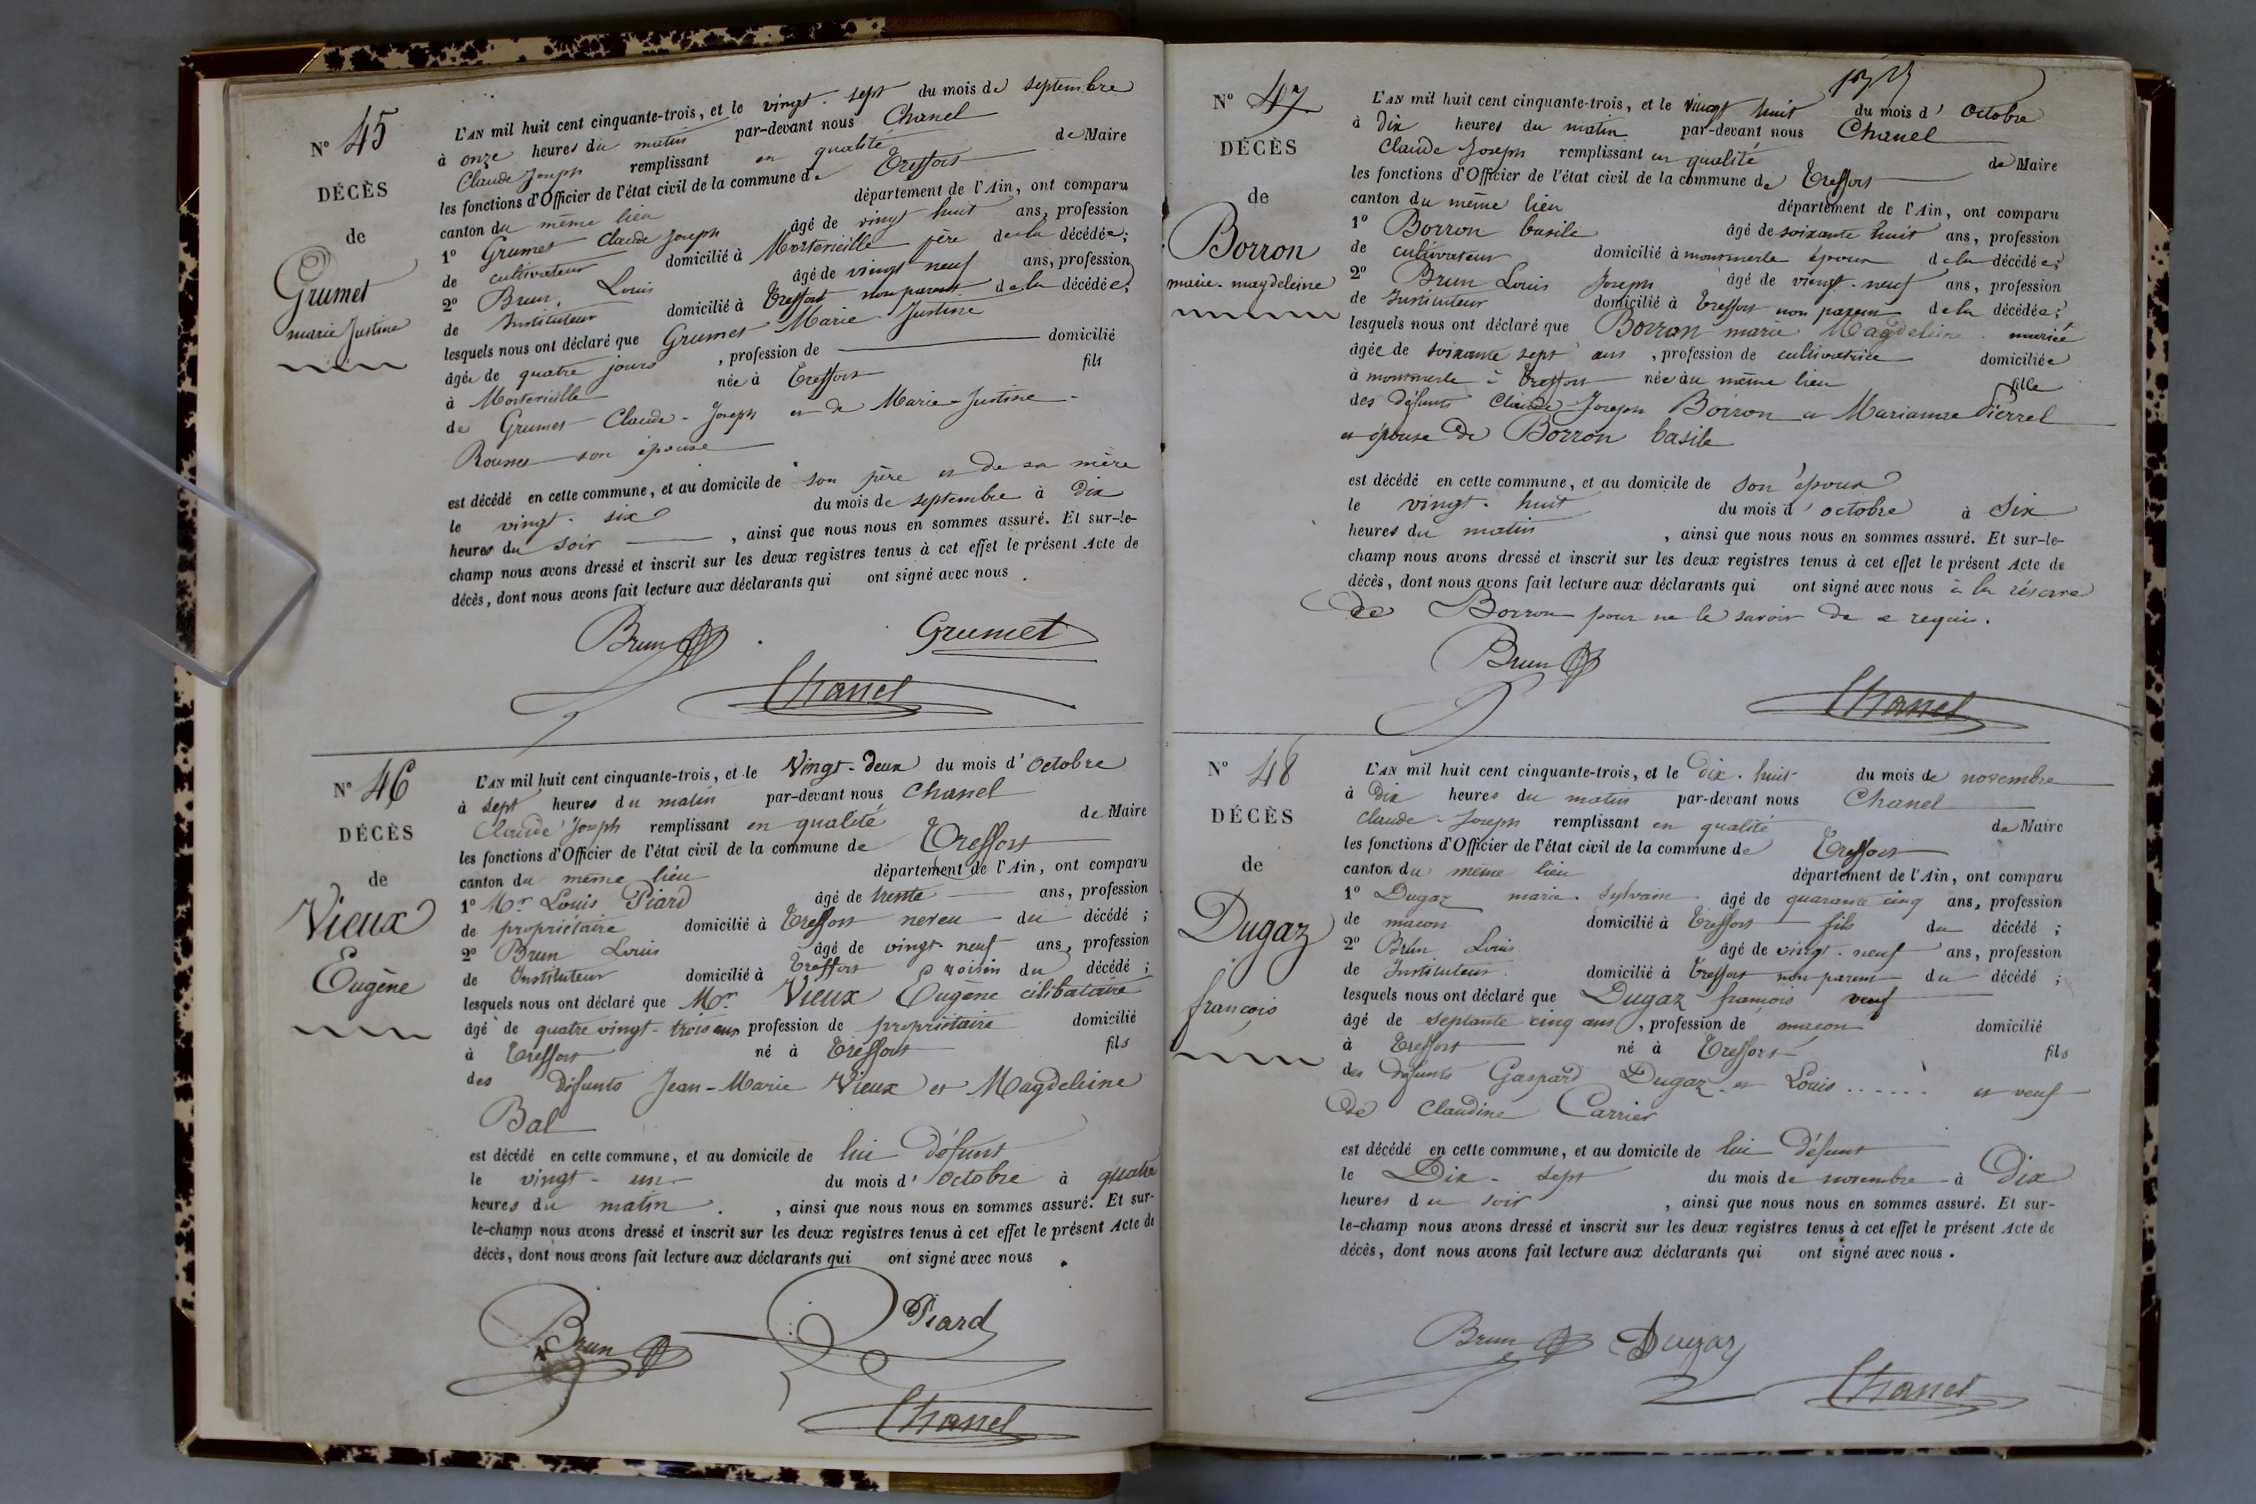 N° 45
DÉCÈS
de
Grumet
marie Justine
L'AN mil huit cent cinquante-trois, et le vingt-sept du mois de septembre
à onze heures du matin par-devant nous Chanel
Claude Joseph remplissant en qualité de Maire
les fonctions d'Officier de l'état civil de la commune de Treffort
canton du même lieu département de l'Ain, ont comparu
1° Grumet Claude Joseph âgé de vingt huit ans, profession
de cultivateur domicilié à père de la décédée;
2° Brun, Louis âgé de vingt neuf ans, profession
de Instituteur domicilié à Treffort non parent de la décédée;
lesquels nous ont déclaré que Grumet Marie-Justine
âgée de quatre jours, profession de domicilié
à née à Treffort fils
de Grumet Claude-Joseph et de Marie-Justine
son épouse
est décédé en cette commune, et au domicile de son père et de sa mère
le vingt-six du mois de septembre à dix
heures du soir, ainsi que nous nous en sommes assuré. Et sur-le-
champ nous avons dressé et inscrit sur les deux registres tenus à cet effet le présent Acte de
décès, dont nous avons fait lecture aux déclarants qui ont signé avec nous.
Brun Grumet
Chanel
N° 46
DÉCÈS
de
Vieux
Eugène
L'AN mil huit cent cinquante-trois, et le Vingt-deux du mois d'Octobre
à sept heures du matin par-devant nous Chanel
Claude Joseph remplissant en qualité de Maire
les fonctions d'Officier de l'état civil de la commune de Treffort
canton du même lieu département de l'Ain, ont comparu
1° Mr Louis Piard âgé de trente ans, profession
de propriétaire domicilié à Treffort neveu du décédé;
2° Brun Louis âgé de vingt-neuf ans, profession
de Instituteur domicilié à Treffort voisin du décédé;
lesquels nous ont déclaré que Mr Vieux Eugène célibataire
âgé de quatre vingt-trois ans profession de propriétaire domicilié
à Treffort né à Treffort fils
des défunts Jean-Marie Vieux et Magdeleine
Bal
est décédé en cette commune, et au domicile de lui défunt
le vingt-un du mois d'Octobre à quatre
heures du matin, ainsi que nous nous en sommes assuré. Et sur-
le-champ nous avons dressé et inscrit sur les deux registres tenus à cet effet le présent Acte de
décès, dont nous avons fait lecture aux déclarants qui ont signé avec nous.
Brun Piard
Chanel
N° 47
DÉCÈS
de
Borron
marie-magdeleine
L'AN mil huit cent cinquante-trois, et le vingt huit du mois d'Octobre
à dix heures du matin par-devant nous Chanel
Claude Joseph remplissant en qualité de Maire
les fonctions d'Officier de l'état civil de la commune de Treffort
canton du même lieu département de l'Ain, ont comparu
1° Borron basile âgé de soixante huit ans, profession
de cultivateur domicilié à époux de la décédée;
2° Brun Louis Joseph âgé de vingt-neuf ans, profession
de Instituteur domicilié à Treffort non parent de la décédée;
lesquels nous ont déclaré que Borron marie Magdeleine mariée
âgée de soixante sept ans, profession de cultivatrice domiciliée
à Treffort née au même lieu fille
des défunts Claude Joseph Borron et Marianne Pierrel
et épouse de Borron basile
est décédé en cette commune, et au domicile de son époux
le vingt-huit du mois d'octobre à Six
heures du matin, ainsi que nous nous en sommes assuré. Et sur-le-
champ nous avons dressé et inscrit sur les deux registres tenus à cet effet le présent Acte de
décès, dont nous avons fait lecture aux déclarants qui ont signé avec nous à la réserve
de Borron pour ne le savoir de ce requis.
Brun
Chanel
N° 48
DÉCÈS
de
Dugaz
françois
L'AN mil huit cent cinquante-trois, et le Dix-huit du mois de novembre
à Dix heures du matin par-devant nous Chanel
Claude-Joseph remplissant en qualité de Maire
les fonctions d'Officier de l'état civil de la commune de Treffort
canton du même lieu département de l'Ain, ont comparu
1° Dugaz marie-Sylvain âgé de quarante cinq ans, profession
de maçon domicilié à Treffort fils du décédé;
2° Brun Louis âgé de vingt-neuf ans, profession
de Instituteur domicilié à Treffort non parent du décédé;
lesquels nous ont déclaré que Dugaz françois veuf
âgé de septante cinq ans, profession de maçon domicilié
à Treffort né à Treffort fils
des défunts Gaspard Dugaz et Louis....... et veuf
de Claudine Carrier
est décédé en cette commune, et au domicile de lui défunt
le Dix-sept du mois de novembre à Dix
heures du soir, ainsi que nous nous en sommes assuré. Et sur-
le-champ nous avons dressé et inscrit sur les deux registres tenus à cet effet le présent Acte de
décès, dont nous avons fait lecture aux déclarants qui ont signé avec nous.
Brun Dugaz
Chanel